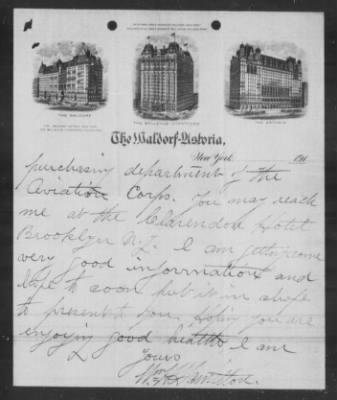 THE WALDORF
THE BELLEVUE-STRATFORD
THE ASTORIA
The Waldorf-Astoria,
New York, 191
purchasing department of the
Aviation Corps. You may reach
me at the Clarendon Hotel
Brooklyn N.Y. I am getting some
very good information and
hope to soon put it in shape
to present to you. Hoping you are
enjoying good health I am
Yours